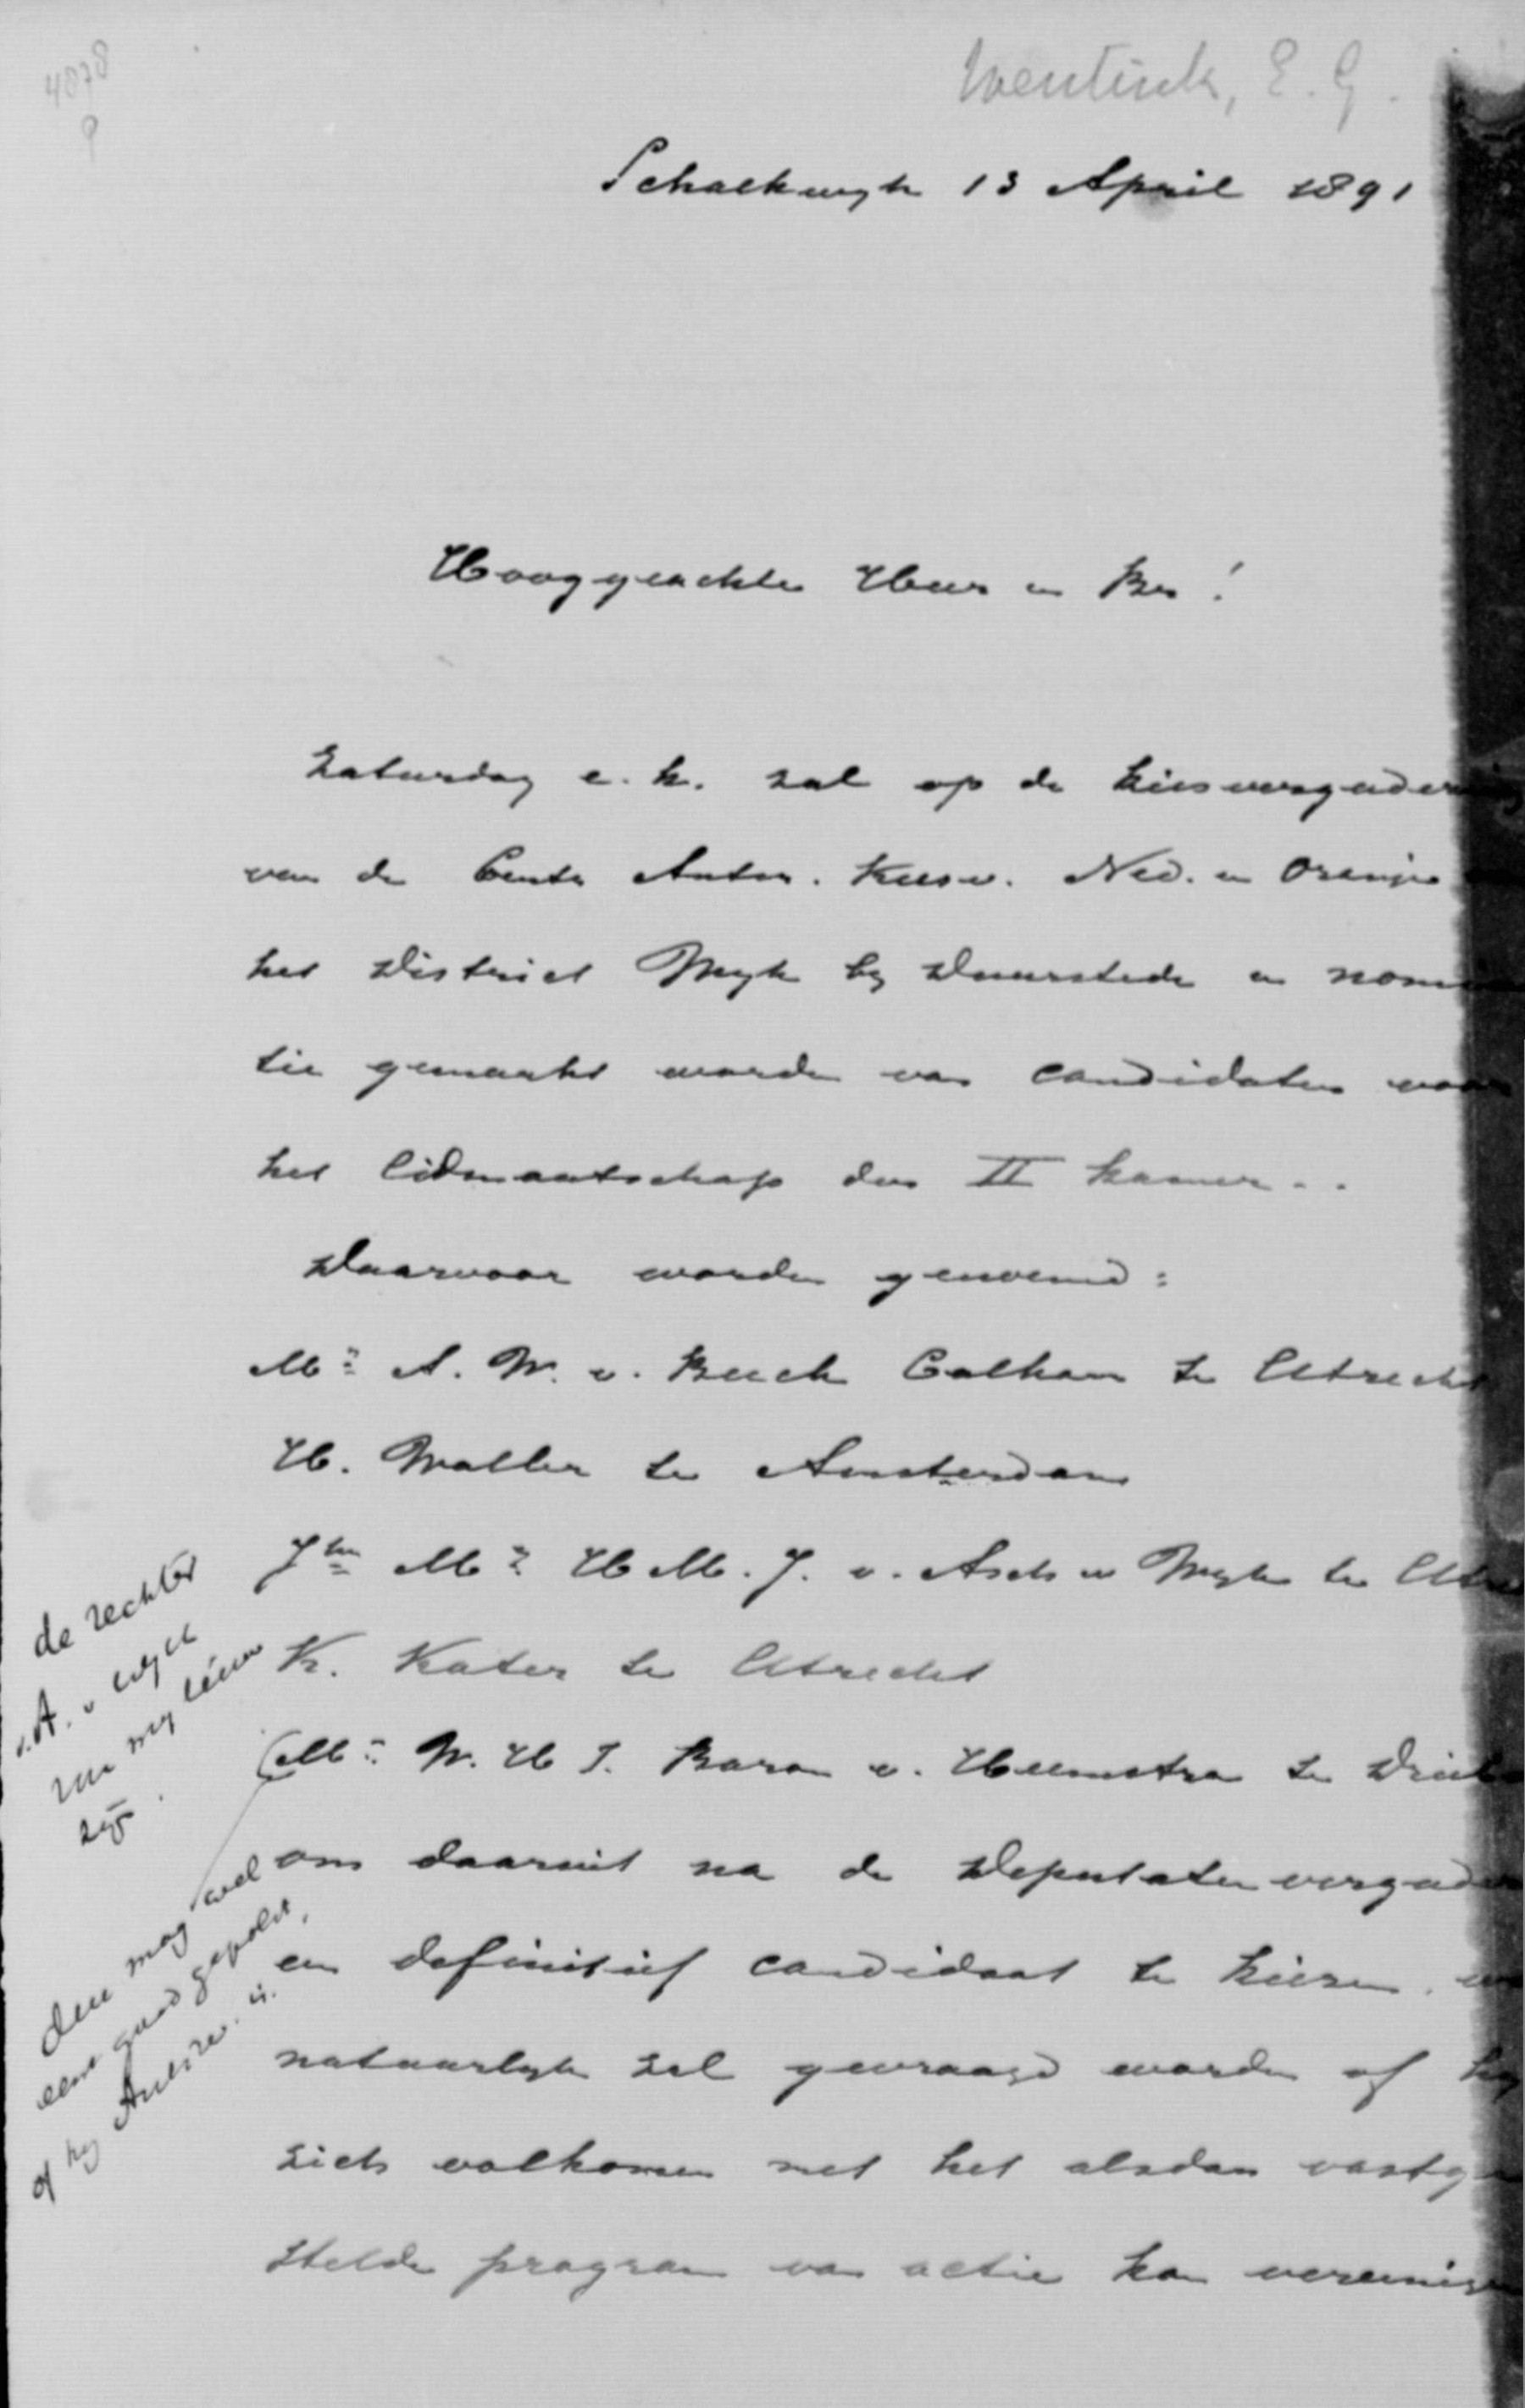 4878
Wentink, E. G.
Schalkwyk 13 April 1891
Hooggeachte Heer en Br!
Zaturdag e. k. zal op de kiesvergader
van de Centr Antir. Kiesv. Ned. en Oranje
het District Wyk by Duurstede en nom
tie gemaakt worden van candidaten voor
het lidmaatschap der II Kamer..
Daarvoor worden genoemd:
Mr A. W. v. Beeck Calkoen te Utrecht
H. Waller te Amsterdam
Jhr Mr H M. J. v. Asch v Wyk te Utre
K. Kater te Utrecht
(Mr W. H J. Baron v. Heemstra te Drieb
om daaruit na de Deputatenvergader
een definitief candidaat te kiezen.
natuurlyk zal gevraagd worden of hy
zich volkomen met het alsdan vastge
stelde program van actie kan vereenige
de rechter
v. A. v Wyck
my
zijn.
deze mag wel
eens goed gepolst,
of hy Antirev. is.